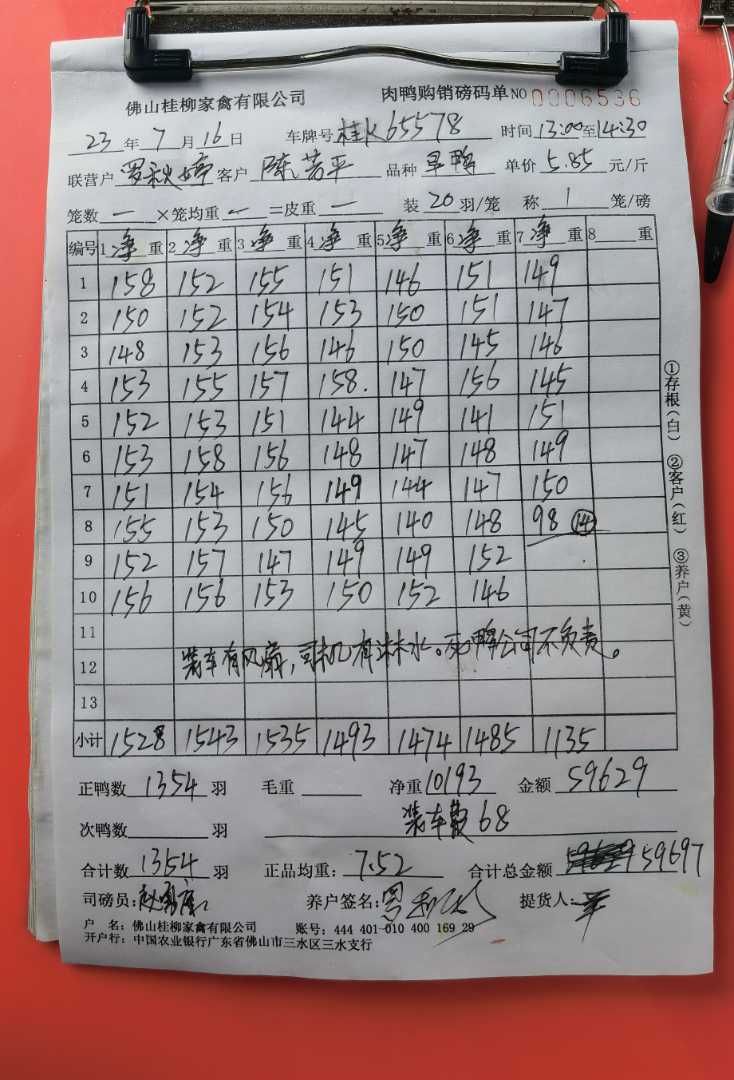 佛山桂柳家禽有限公司 肉鸭购销磅码单 NO 0006536
23 年 7 月 16 日 车牌号 桂K65578 时间 13:00 至 14:30
联营户 罗秋婷 客户 陈芳平 品种 旱鸭 单价 5.85 元/斤
笼数 一 ×笼均重 一 =皮重 一 装 20 羽/笼 称 1 笼/磅
编号 1 净 重 2 净 重 3 净 重 4 净 重 5 净 重 6 净 重 7 净 重 8 重
1 158 152 155 151 146 151 149
2 150 152 154 153 150 151 147
3 148 153 156 146 150 145 146
4 153 155 157 158. 147 156 145
5 152 153 151 144 149 141 151
6 153 158 156 148 147 148 149
7 151 154 156 149 144 147 150
8 155 153 150 145 140 148 98 14
9 152 157 147 149 149 152
10 156 156 153 150 152 146
11
12 装车有风扇，司机有淋水。死鸭公司不负责。
13
小计 1528 1543 1535 1493 1474 1485 1135
正鸭数 1354 羽 毛重 净重 10193 金额 59629
次鸭数 羽 装车费 68
合计数 1354 羽 正品均重: 7.52 合计总金额 59697
司磅员: 养户签名: 提货人:
户 名: 佛山桂柳家禽有限公司 账号: 444 401-010 400 169 29
开户行: 中国农业银行广东省佛山市三水区三水支行
①存根(白) ②客户(红) ③养户(黄)